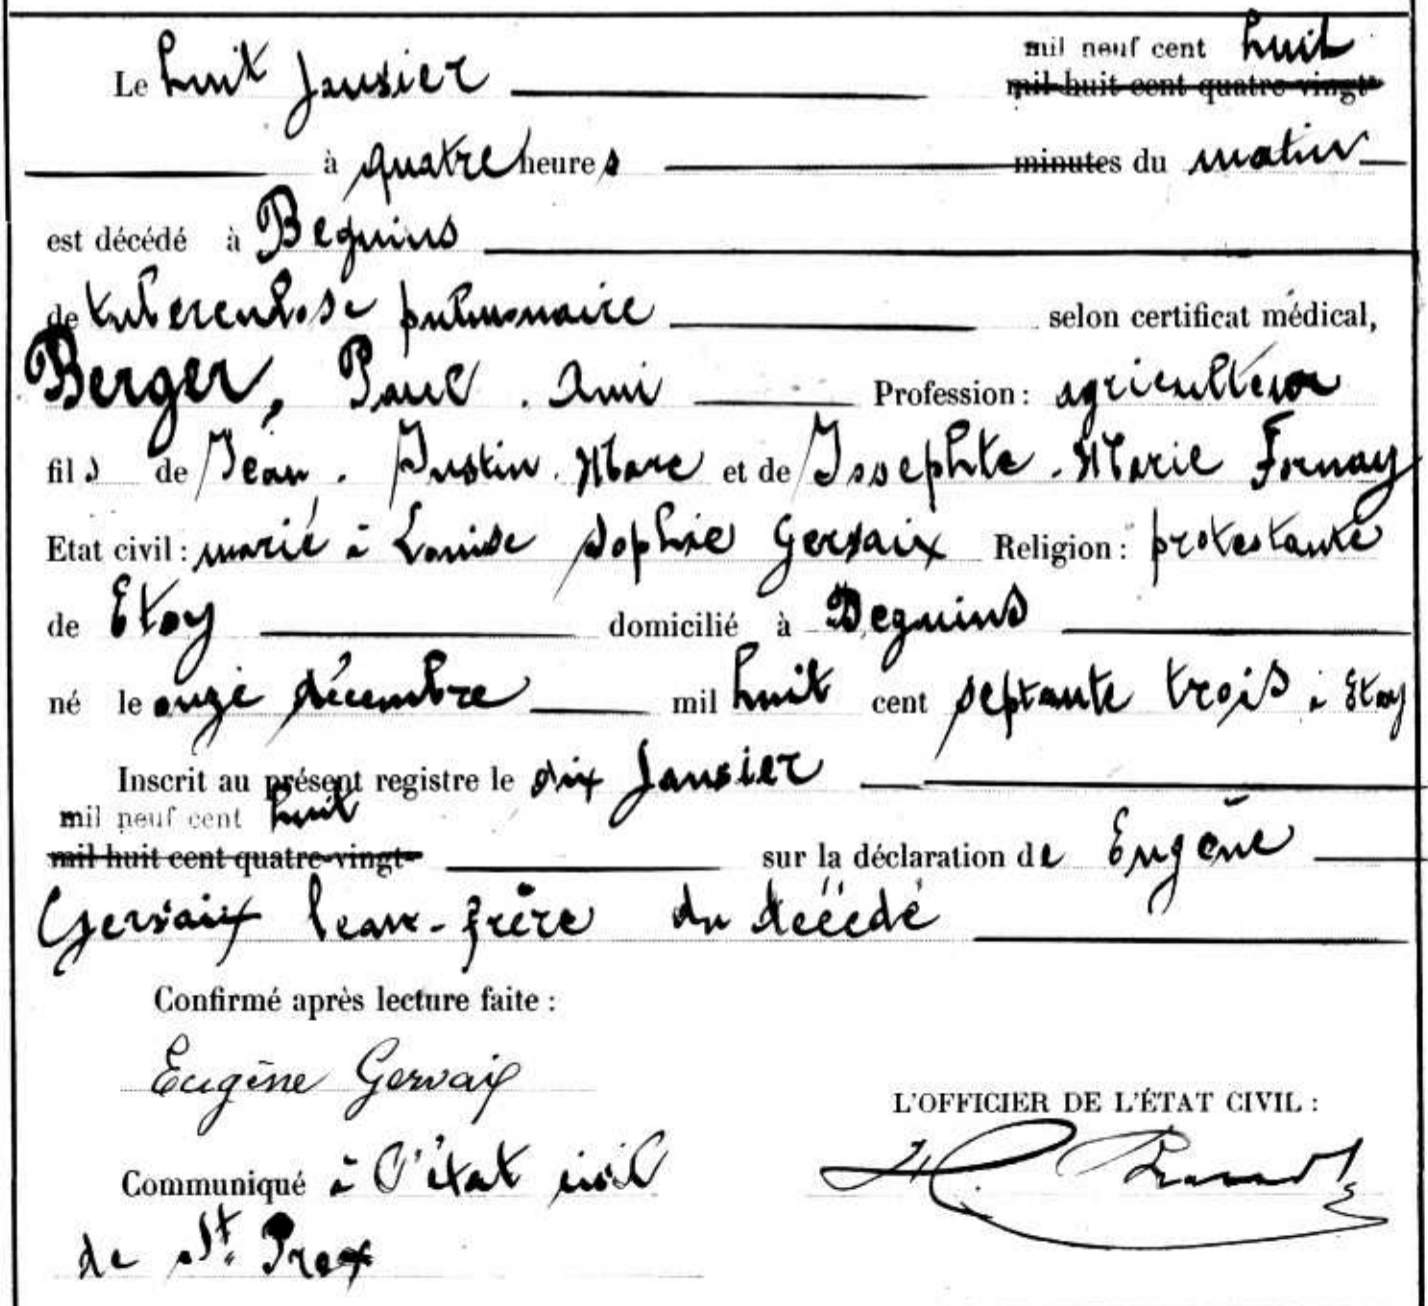 mil neuf cent huit
Le huit Janvier mil huit cent quatre-vingt
à quatre heures minutes du matin
est décédé à Begnins
de tuberculose pulmonaire selon certificat médical,
Berger, Paul. Ami Profession: agriculteur
fils de Jean. Justin. Marc et de Josephte. Marie Fornay
Etat civil: marié à Louise Sophie Gervaix Religion: protestante
de Etoy domicilié à Begnins
né le onze décembre mil huit cent septante trois à Etoy
Inscrit au présent registre le dix Janvier
mil neuf cent huit
mil huit cent quatre-vingt- sur la déclaration de Eugène
Gervaix beau-frère du décédé
Confirmé après lecture faite:
Eugène Gervaix
L'OFFICIER DE L'ÉTAT CIVIL:
Communiqué à l'état civil
de St. Prex